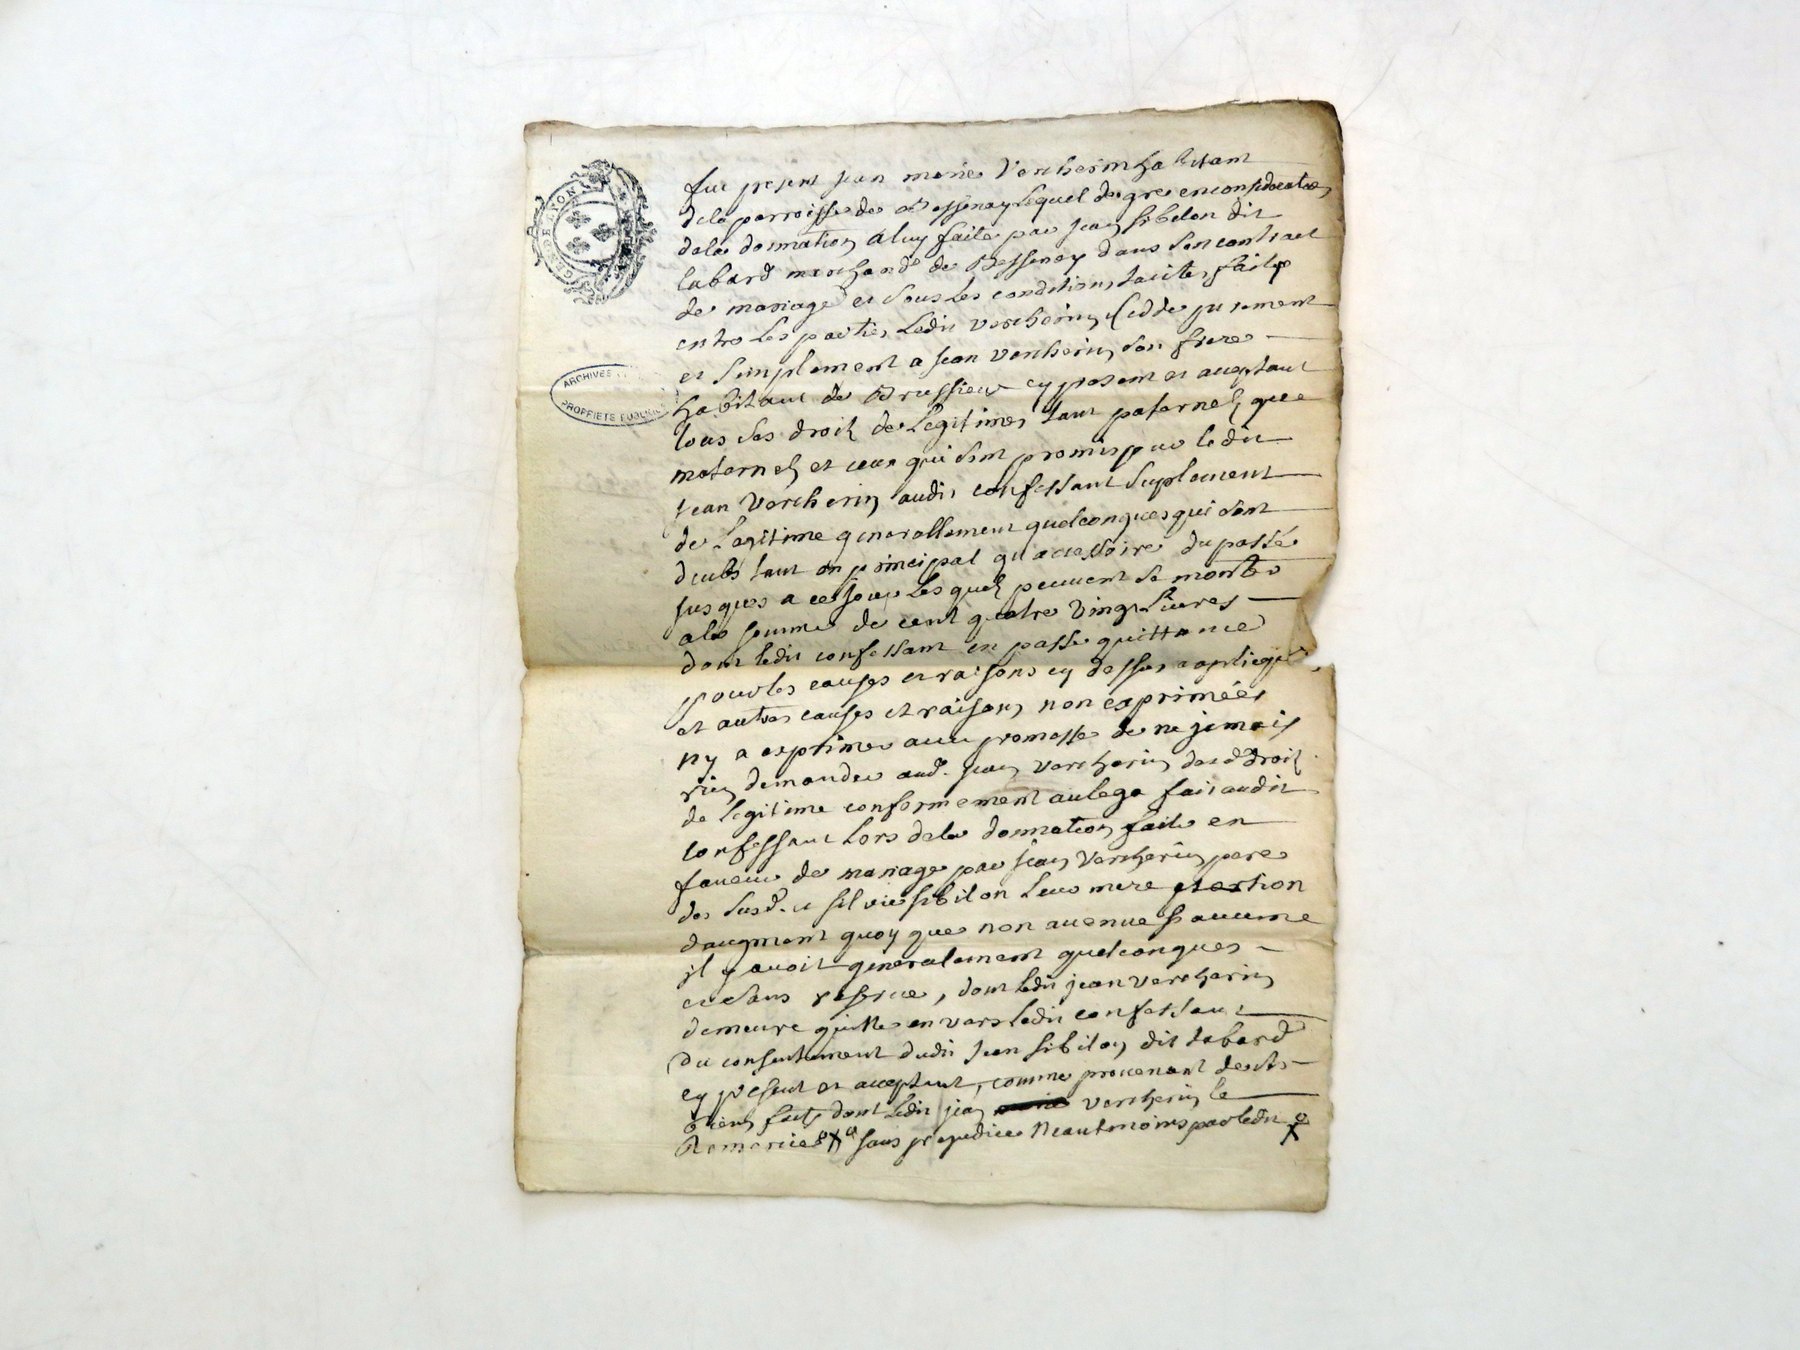 GEN. DE LYON
ARCHIVES
PROPRIETE PUBLIQUE
fut present jean marie Vercherin habitant
dela parroisse de Bessenay lequel de gre en consideration
dela donnation a luy faite par jean sibilon dit
labard marchand de Bessenay dans son contract
de mariage et sous les conditions tacites faites
entre les parties ledit vercherin cedde purement
et simplement a jean vercherin son frere
habitant de Brussieu cy present et acceptant
tous ses droits de legitimes tant paternels que
maternels et ceux qui sont promis par ledit
jean Vercherin audit confessant suplement
de legitime generallement quelconques qui sont
deubs tant en principal qu'accessoire du passé
jusques a ce jour lesquels peuvent se monter
ala somme de cent quatre vingt livres
dont ledit confessant en passe quittance
pour les causes et raisons cy dessus
et autres causes et raisons non exprimées
ny a exprimer avec promesse de ne jamais
rien demander aud. jean vercherin desd. droits
de legitime conformement aulega fait audit
confessant lors dela donnation faite en
faveur de mariage par jean Vercherin pere
des susd. et silvie sibilon leur mere
daugment quoy que non avenue si aucune
il y avoit generalement quelconques
et sans reserve, dont ledit jean vercherin
demeure quitte envers ledit confessant
du consentement dudit jean sibilon dit labard
cy present et acceptant, comme provenant de ses
biens faits dont ledit jean vercherin le
Remercie sans prejudice Neantmoins par ledit